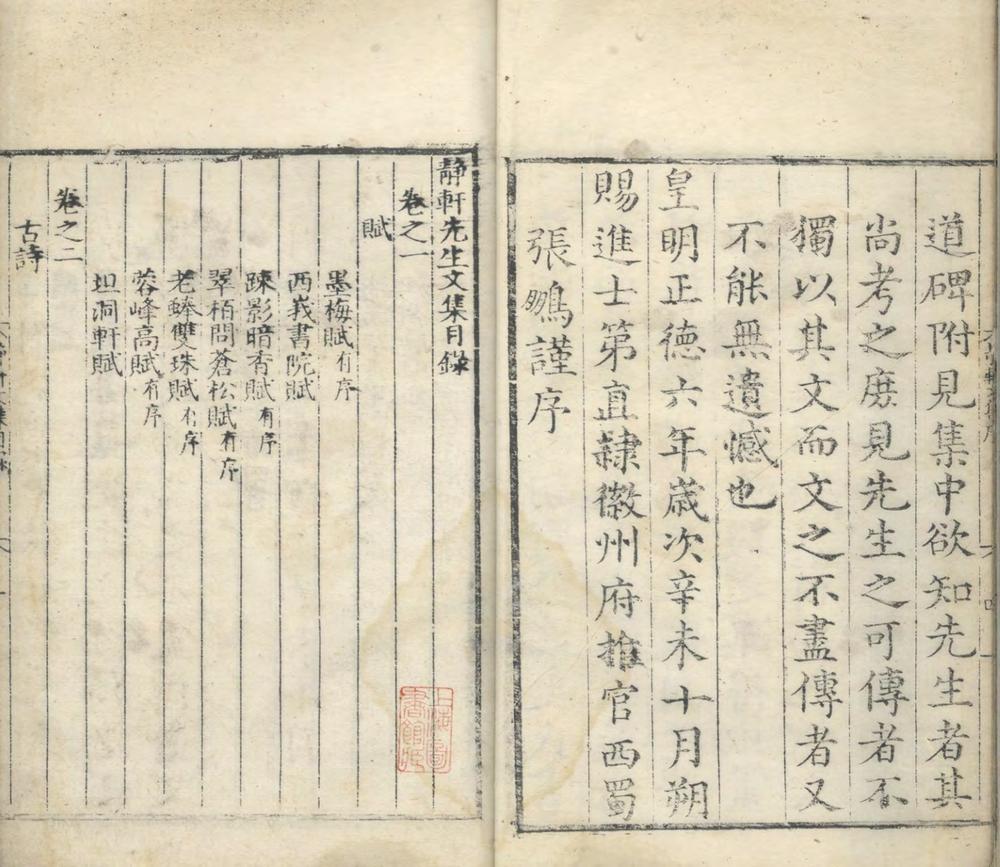 道碑附見集中欲知先生者其
尚考之庶見先生之可傳者不
獨以其文而文之不盡傳者又
不能無遺憾也
皇明正德六年歲次辛未十月朔
賜進士第直隸徽州府推官西蜀
張鵬謹序
靜軒先生文集目錄
卷之一
賦
墨梅賦有序
西峩書院賦
踈影暗香賦有序
翠栢問蒼松賦有序
老蚌雙珠賦有序
蓉峰高賦有序
坦洞軒賦
卷之二
古詩
上海圖
書館藏